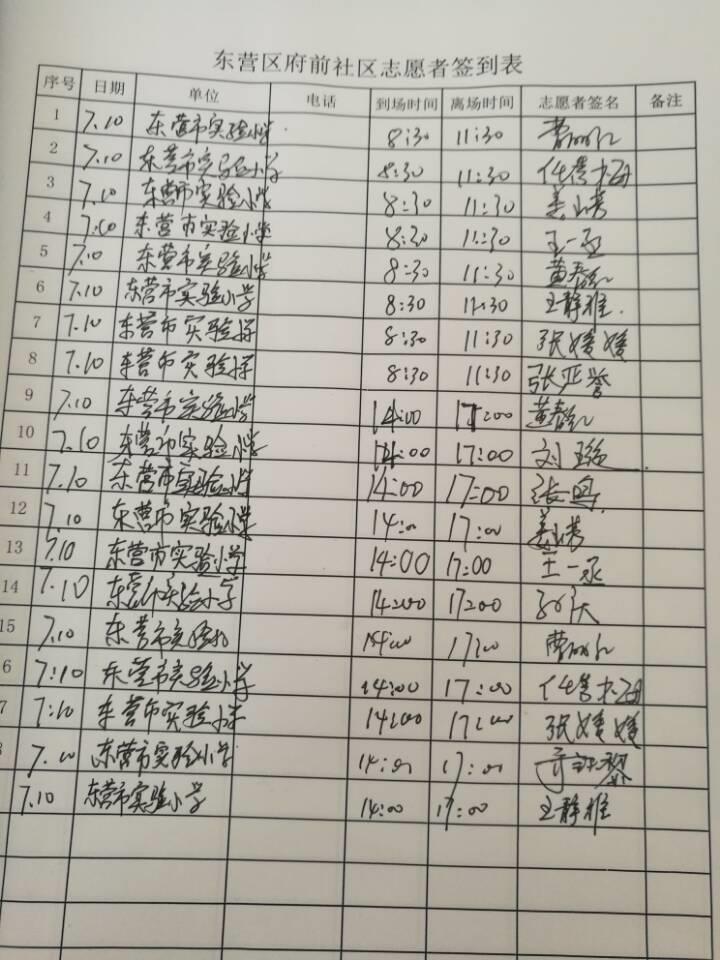 东营区府前社区志愿者签到表
序号 日期 单位 电话 到场时间 离场时间 志愿者签名 备注
1 7.10 东营市实验小学 8:30 11:30
2 7.10 东营市实验小学 8:30 11:30
3 7.10 东营市实验小学 8:30 11:30
4 7.10 东营市实验小学 8:30 11:30 王一丞
5 7.10 东营市实验小学 8:30 11:30 黄春红
6 7.10 东营市实验小学 8:30 11:30 王静雅
7 7.10 东营市实验小学 8:30 11:30 张媛媛
8 7.10 东营市实验小学 8:30 11:30 张亚誉
9 7.10 东营市实验小学 14:00 17:00 黄春红
10 7.10 东营市实验小学 14:00 17:00 刘璇
11 7.10 东营市实验小学 14:00 17:00 张鸣
12 7.10 东营市实验小学 14:00 17:00
13 7.10 东营市实验小学 14:00 17:00 王一丞
14 7.10 东营市实验小学 14:00 17:00
15 7.10 东营市实验小学 14:00 17:00
6 7:10 东营市实验小学 14:00 17:00
7 7:10 东营市实验小学 14:00 17:00 张媛媛
7.10 东营市实验小学 14:00 17:00
7.10 东营市实验小学 14:00 17:00 王静雅